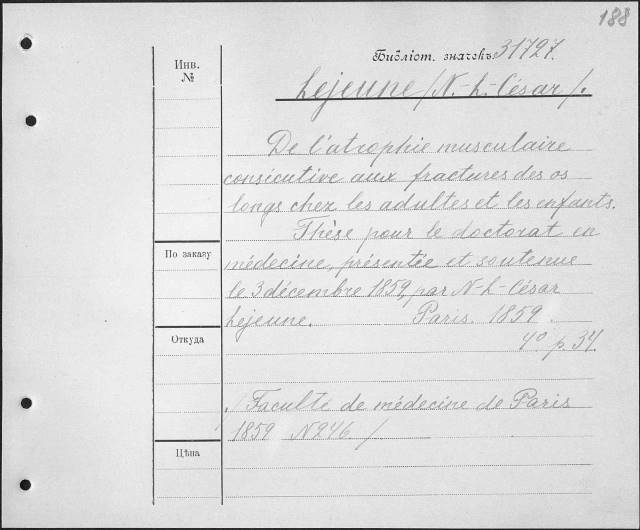 188
Библіот. значекъ 31727.
Инв.
№
Lejeune /N.-L.-César/.
De l'atrophie musculaire
consécutive aux fractures des os
longs chez les adultes et les enfants.
Thèse pour le doctorat en
По заказу
médecine, présentée et soutenue
le 3 décembre 1859, par N-L-César
Lejeune. Paris. 1859.
Откуда
4° p. 34.
/Faculté de médecine de Paris
1859 N246/
Цѣна